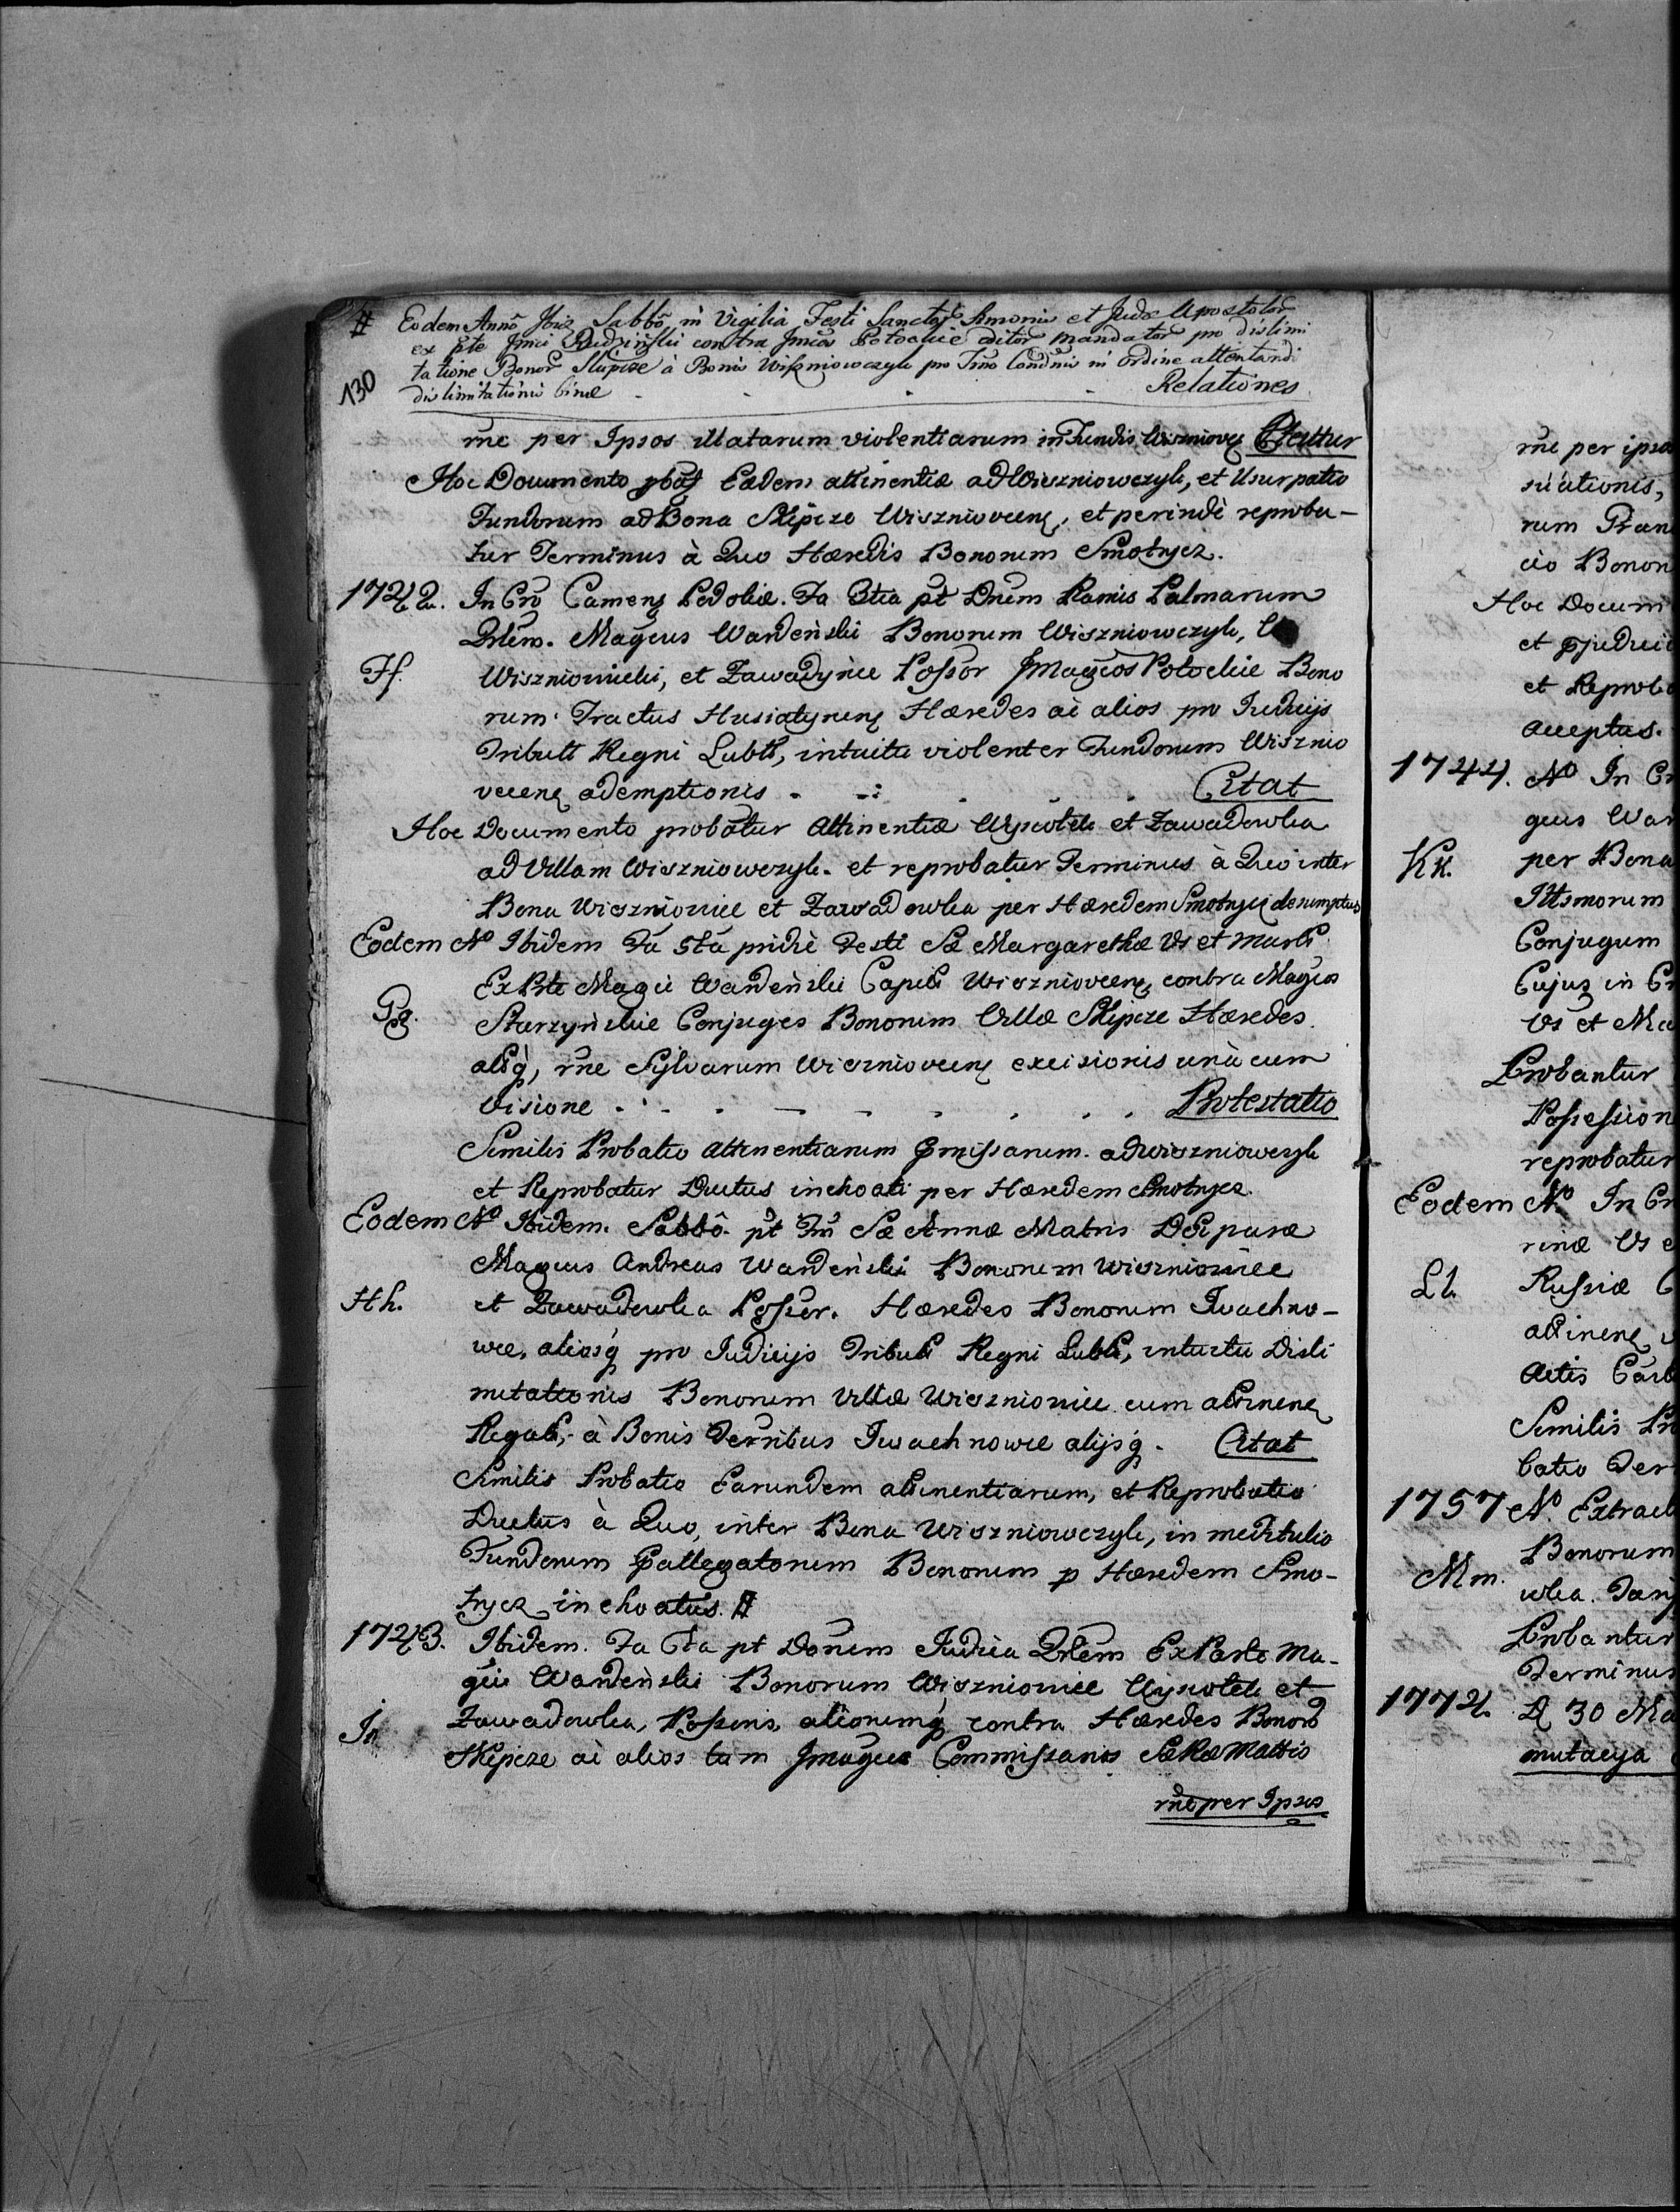 # Eodem Annô Ibid Sabbô in Vigilia Festi Sanctor Simonis et Judæ Apostolor
ex pte Jmci Rudzinski contra Jmcos Potockie editor mandator pro dislimi
tatione Bonor Słupcze à Bonis Wiszniowczyk pro Tmo Condnis in ordine attentandi
130
dislimitationis binæ - - - - Relationes
rne per Ipsos illatarum violentiarum in Fundis Wiszniovę
Hoc Documento pbat Eædem attinentiæ ad Wieszniowczyk, et Usurpatio
Fundorum ad Bona Słupcze Wisznioveenę, et perindè reproba-
tur Terminus à Quo Hæredis Bonorum Smotrycz.
1742. In Cro Camenę Podoliæ. Fa 3tia pt Dnem Ramis Palmarum
Qdem. Magcus Wardeński Bonorum Wiszniowczyk,
Ff. Wiszniowieki, et Zawadyńce Possor JMagcos Potockie Bono
rum Tractus Husiatynenę Hæredes ac alios pro Judicijs
Tribult Regni Lubli, intuitu violenter Fundorum Wisznio
veenę ademptionis - - - - Citat
Hoc Documento probatur Attinentiæ Wysiolek et Zawadowka
ad Villam Wiszniowczyk. et reprobatur Terminus à Quo inter
Bona Wiszniowice et Zawadowka per Hæredem Smotryci desumptus
Eodem No Ibidem Fa 5ta pridiè Festi Sæ Margarethæ Vs et Marti
Ex Pte Magci Wardeński Capit Wisznioveenę contra Magcos
Gg. Starzyńskie Conjuges Bonorum Villæ Słupcze Hæredes
alsq, rne Sylvarum Wiszniovcenę excisionis unà cum
Visione - - - - - - Protestatio
Similis Probatio Attinentiarum pmissarum ad Wiszniowczyk
et Reprobatur Ductus inchoati per Hæredem Smotrycz.
Eodem No Ibidem. Sabbô pt Fm Sæ Annæ Matris Deiparæ
Magcus Andreas Wardeński Bonorum Wiszniowice
Hh. et Zawadowka Possor. Hæredes Bonorum Iwachno-
wce, aliosq pro Judicijs Tribuli Regni Lubli, intuitu Disli
mitationis Bonorum Villæ Wiszniowice cum attinenę
Regali, à Bonis Terribus Iwachnowce alijsq. Citat
Similis Probatio Earundem attinentiarum, et Reprobatio
Ductus à Quo, inter Bona Wiszniowczyk, in meditulio
Fundorum pallegatorum Bonorum p Hæredem Smo-
trycz inchoatus. #
1743. Ibidem. Fa 6ta pt Donem Judica Qdem Ex Parte Ma-
gci Wardeński Bonorum Wiszniowice Wysiolek et
Zawadowka, Possoris, aliorumq contra Hæredes Bonor
Słupcze ac alios tam Jmagcos Commissarios SæRæMattis
rne per Ipsos
rne per ipso
suationis,
rum
cio Bonon
Hoc Docum
et pjudici
et Reprob
acceptus.
1744. No In Cr
gcus War
Kk. per Bona
Illsmorum
Conjugum
Cujus in Cr
Vs et Ma
Probantur
Possession
reprobatur
Eodem No In Cr
rinæ Vs e
Ll. Russiæ C
attinenę
Actis
Similis Pr
batio Ter
1757 No Extract
Bonorum
Mm. wka.
Probantur
Terminus
1772. D 30 Ma
mutacya